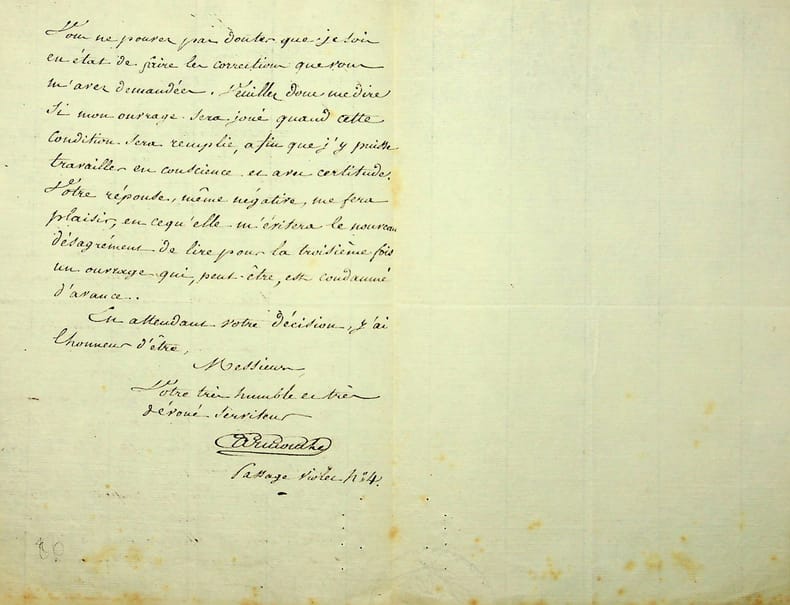 Vous ne pouvez pas douter que je sois
en état de faire les corrections que vous
m'avez demandées. Veuillez donc me dire
si mon ouvrage sera joué quand cette
condition sera remplie, afin que j'y puisse
travailler en conscience et avec certitude.
Votre réponse, même négative, me fera
plaisir, en ce qu'elle m'évitera le nouveau
désagrément de lire pour la troisième fois
un ouvrage qui, peut-être, est condamné
d'avance..
En attendant votre décision, j'ai
l'honneur d'être,
Messieurs,
Votre très humble et très
dévoué serviteur
Passage violet n° 4.